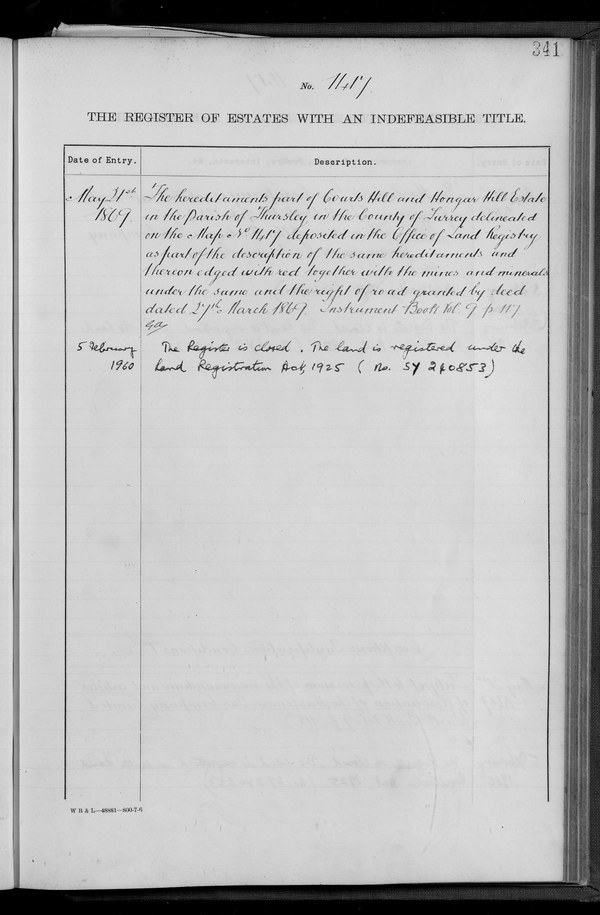 341
No. 1417
THE REGISTER OF ESTATES WITH AN INDEFEASIBLE TITLE.
Date of Entry. Description.
May 31st 1869 The hereditaments part of Courts Hill and Hongar Hill Estate
in the Parish of Thursley in the County of Surrey delineated
on the Map No 1417 deposited in the Office of Land Registry
as part of the description of the same hereditaments and
thereon edged with red together with the mines and minerals
under the same and the right of road granted by deed
dated 27th March 1869. Instrument Book Vol. 9 p 117
5 February 1960 The Register is closed. The land is registered under the
Land Registration Act, 1925 (No. SY 240853)
W B & L—48881—800-7-6